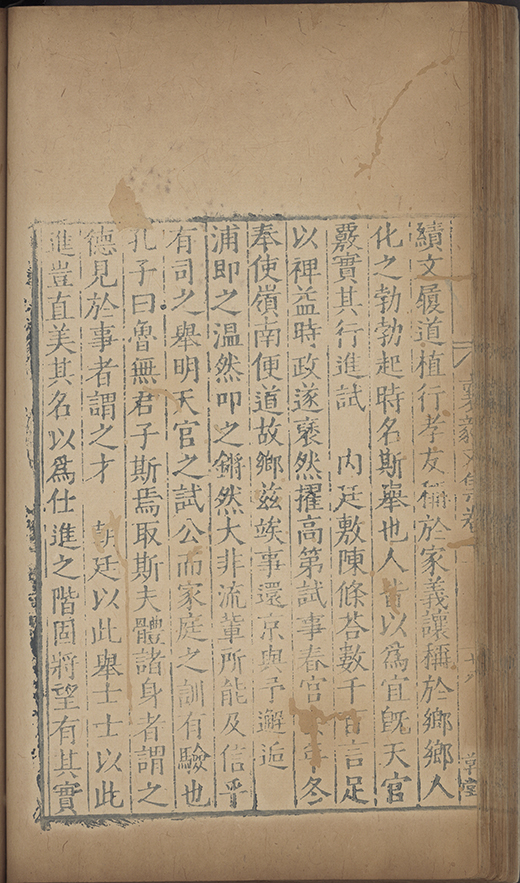 襄毅文集卷
草堂
績文履道植行孝友稱於家義讓稱於鄉鄉人
化之勃勃起時名斯舉也人皆以爲宜旣天官
覈實其行進試　内廷敷陳條荅數千百言足
以裨益時政遂裒然擢高第試事春官冬
奉使嶺南便道故鄉兹竢事還京與予邂逅
浦即之温然叩之鏘然大非流輩所能及信乎
有司之舉明天官之試公而家庭之訓有驗也
孔子曰魯無君子斯焉取斯夫體諸身者謂之
德見於事者謂之才　朝廷以此舉士士以此
進豈直美其名以爲仕進之階固將望有其實